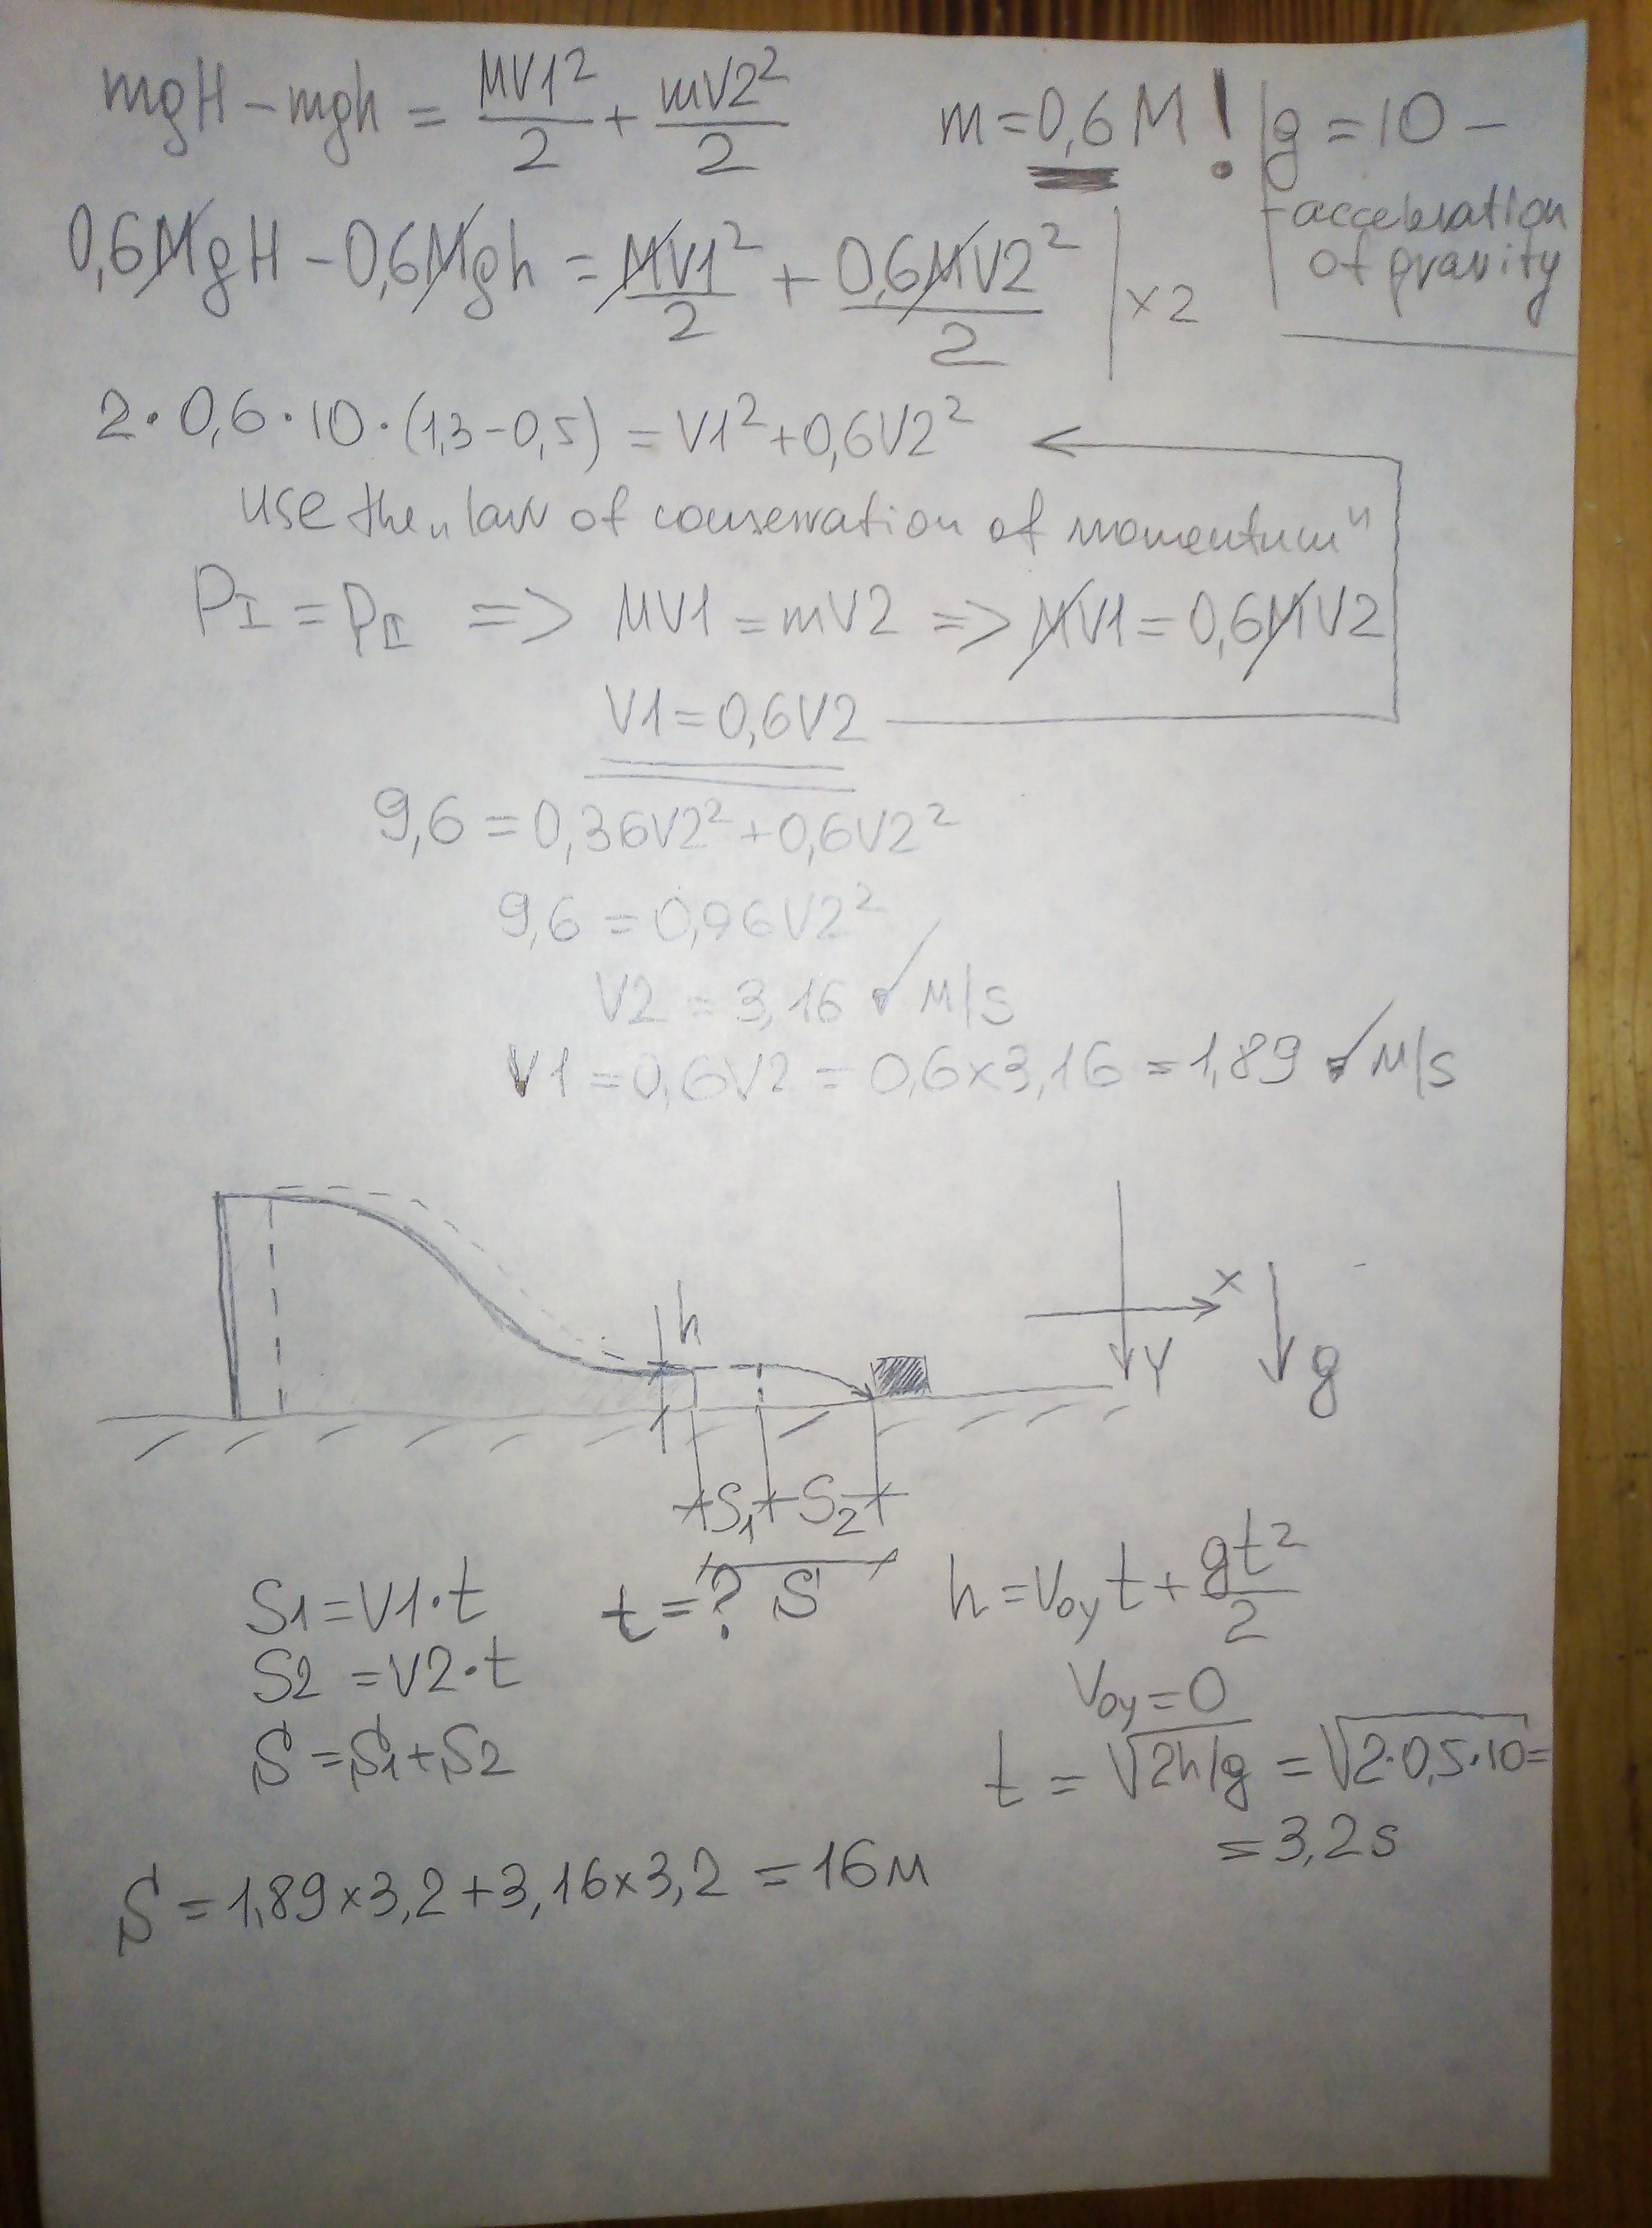 mgH - mgh = MV1²/2 + mV2²/2
m = 0,6 M !
g = 10 -
- acceleration
of gravity
0,6MgH - 0,6Mgh = MV1²/2 + 0,6MV2²/2 | ×2
2·0,6·10·(1,3-0,5) = V1²+0,6V2²
use the „law of conservation of momentum"
PI = PII => MV1 = mV2 => MV1 = 0,6MV2
V1 = 0,6V2
9,6 = 0,36V2² + 0,6V2²
9,6 = 0,96V2²
V2 = 3,16 ✓ M/S
V1 = 0,6V2 = 0,6×3,16 = 1,89 ✓ M/S
h
X
Y
g
S1 S2
S
S1 = V1·t
S2 = V2·t
S = S1+S2
t = ?
h = V0y t + gt²/2
V0y = 0
t = √2h/g = √2·0,5·10 =
= 3,2s
S = 1,89×3,2+3,16×3,2 = 16м